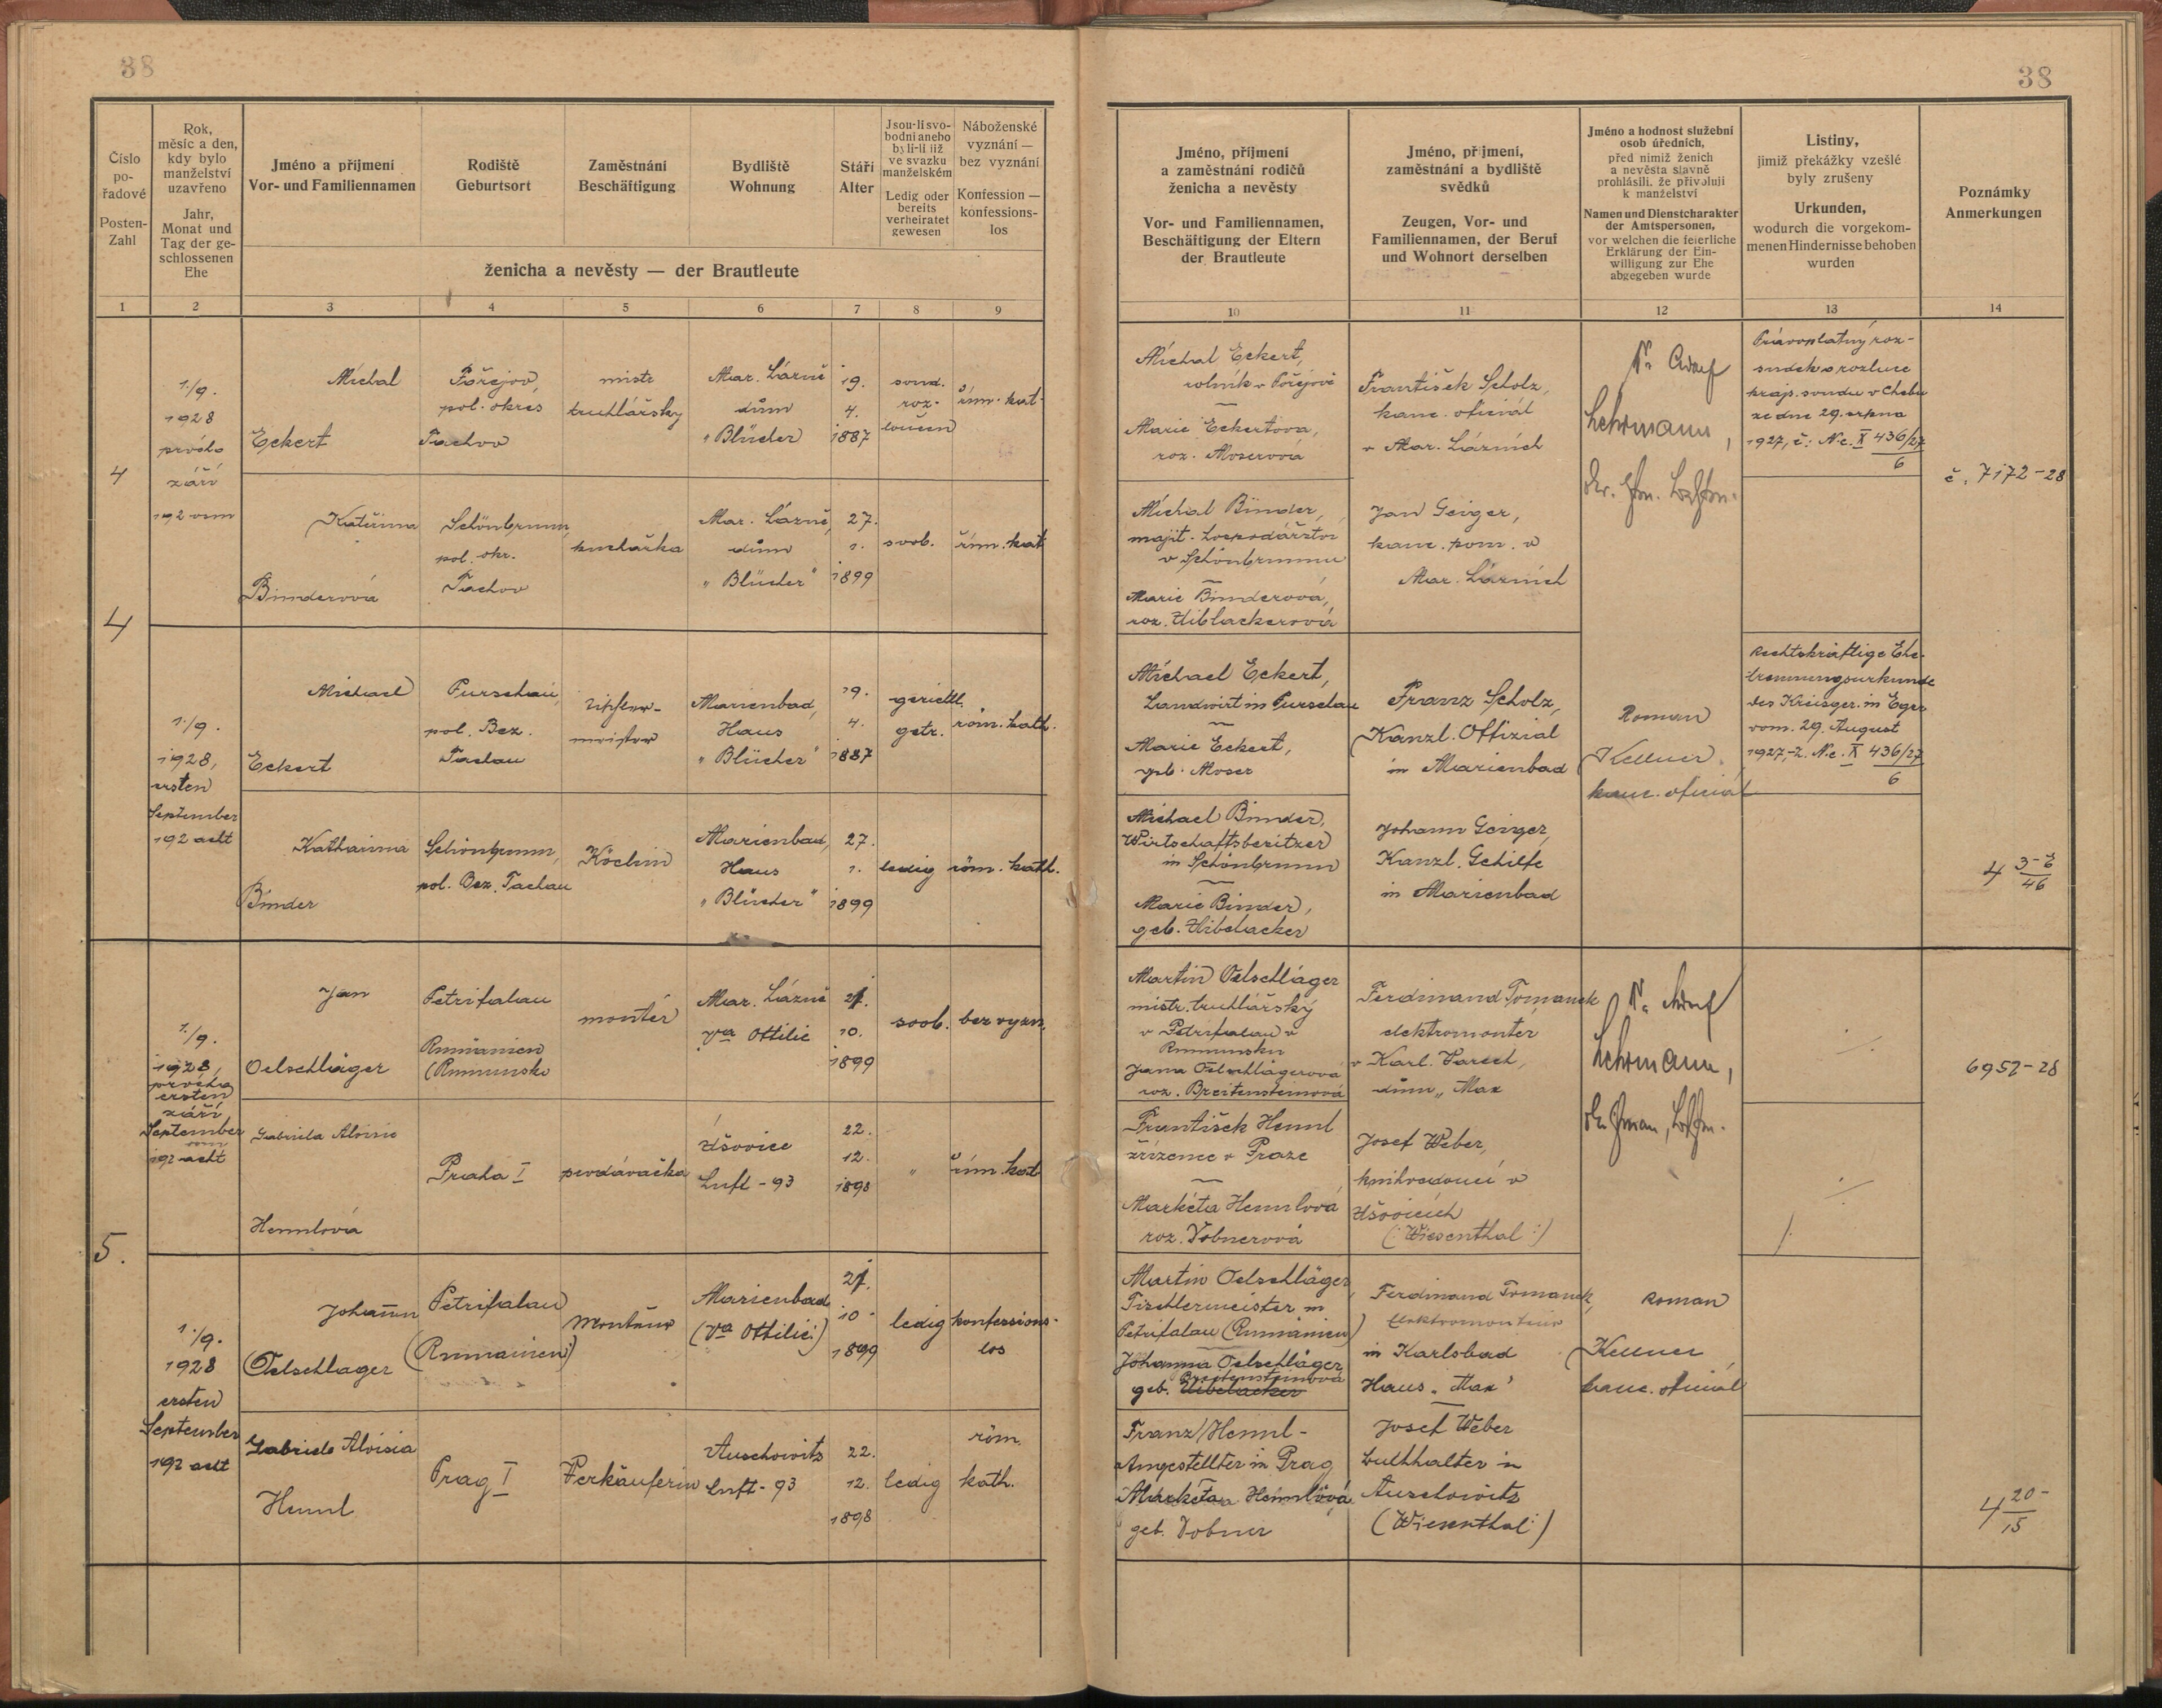 38
38
Číslo
po-
řadové
Posten-
Zahl
Rok,
měsíc a den,
kdy bylo
manželství
uzavřeno
Jahr,
Monat und
Tag der ge-
schlossenen
Ehe
Jméno a příjmení
Vor- und Familiennamen
Rodiště
Geburtsort
Zaměstnání
Beschäftigung
Bydliště
Wohnung
Stáří
Alter
Jsou-li svo-
bodni aneb o
byli-li již
ve svazku
manželském
Ledig oder
bereits
verheiratet
gewesen
Náboženské
vyznání —
bez vyznání
Konfession —
konfessions-
los
ženicha a nevěsty — der Brautleute
Jméno, příjmení
a zaměstnání rodičů
ženicha a nevěsty
Vor- und Familiennamen,
Beschäftigung der Eltern
der Brautleute
Jméno, příjmení,
zaměstnání a bydliště
svědků
Zeugen, Vor- und
Familiennamen, der Beruf
und Wohnort derselben
Jméno a hodnost služební
osob úředních,
před nimiž ženich
a nevěsta slavně
prohlásili, že přivolují
k manželství
Namen und Dienstcharakter
der Amtspersonen,
vor welchen die feierliche
Erklärung der Ein-
willigung zur Ehe
abgegeben wurde
Listiny,
jimiž překážky vzešlé
byly zrušeny
Urkunden,
wodurch die vorgekom-
menen Hindernisse behoben
wurden
Poznámky
Anmerkungen
1 2 3 4 5 6 7 8 9 10 11 12 13 14
4
1./9.
1928
prvého
září
192 osm
Michal
Eckert
Pořejov,
pol. okres
Tachov
mistr
truhlářský
Mar. Lázně
dům
"Blücher
19.
4.
1887
soud.
roz-
loučen
řím. kat.
Michal Eckert,
rolník v Pořejově
Marie Eckertova,
roz. Moserová
František Scholz,
kanc. oficiál
v Mar. Lázních
Dr. Adolf
Lehrmann,
Právoplatný roz-
sudek o rozluce
krajs. soudu v Chebu
ze dne 29. srpna
1927, č: Nc. X 436/27
6
č. 7172-28
Kateřina
Binderová
Schönbrunn,
pol. okr.
Tachov
kuchařka
Mar. Lázně,
dům
"Blücher"
27.
1.
1899
svob.
řím. kat
Michal Binder,
majit. hospodářství
v Schönbrunnu
Marie Binderová,
roz. Hiblackerová
Jan Geiger,
kanc. pom. v
Mar. Lázních
4
1./9.
1928,
ersten
September
192 acht
Michael
Eckert
Purschau,
pol. Bez.
Tachau
Tischler-
meister
Marienbad,
Haus
"Blücher"
19.
4.
1887
gerichtl.
getr.
röm. kath.
Michael Eckert,
Landwirt in Purschau
Marie Eckert,
geb. Moser
Franz Scholz,
Kanzl. Offizial
in Marienbad
Roman
Kellner
kanc. oficiál
Rechtskräftige Ehe-
trennungsurkunde
des Kreisger. in Eger
vom. 29. August
1927,-Z. Nc. X 436/27
6
Katharina
Binder
Schönbrunn,
pol. Bez. Tachau
Köchin
Marienbad,
Haus
"Blücher"
27.
1.
1899
ledig
röm. kath.
Michael Binder,
Wirtschaftsbesitzer
in Schönbrunn
Marie Binder,
geb. Hibelacker
Johann Geiger,
Kanzl. Gehilfe
in Marienbad
4 3-E
46
5.
1./9.
1928,
prvého
ersten
září
September
osm
192 acht
Jan
Oelschläger
Petrifalau
Rumänien
(Rumunsko
montér
Mar. Lázně
Va Ottilie
21.
10.
1899
svob.
bez vyzn.
Martin Oelschläger
mistr. truhlářský
v Petrifalau v
Rumunsku
Jana Oelschlägerová
roz. Breitensteinová
Ferdinand Tomanek
elektromontér
v Karl. Varech,
dům „Max
Dr. Adolf
Lehrmann,
6952-28
Gabriela Aloisie
Hennlová
Praha I
prodavačka
Úšovice
Luft-93
22.
12.
1898
"
řím. kat
František Hennl
zřízenec v Praze
Markéta Hennlová
roz. Dobnerová
Josef Weber,
knihvedoucí v
Úšovicích
(:Wiesenthal:)
1./9.
1928
ersten
September
192 acht
Johann
Oelschlager
Petrifalau
(Rumainien)
Monteur
Marienbad
(Va Ottilie:)
21.
10.
1899
ledig
konfessions-
los
Martin Oelschläger,
Tischlermeister in
Petrifalau (Rumänien)
Johanna Oelschläger
Breitensteinová
geb. Hibelacker
Ferdinand Tomanek,
Elektromonteur
in Karlsbad
Haus „Max"
Roman
Kellner,
kanc. oficiál
Gabriele Aloisia
Hennl
Prag I
Verkäuferin
Auschowitz
Luft-93
22.
12.
1898
ledig
röm.
kath.
Franz Hennl-
Angestellter in Prag
Markéta Hennlová
geb. Dobner
Josef Weber
Buchhalter in
Auschowitz
(Wiesenthal:)
4 20-
15